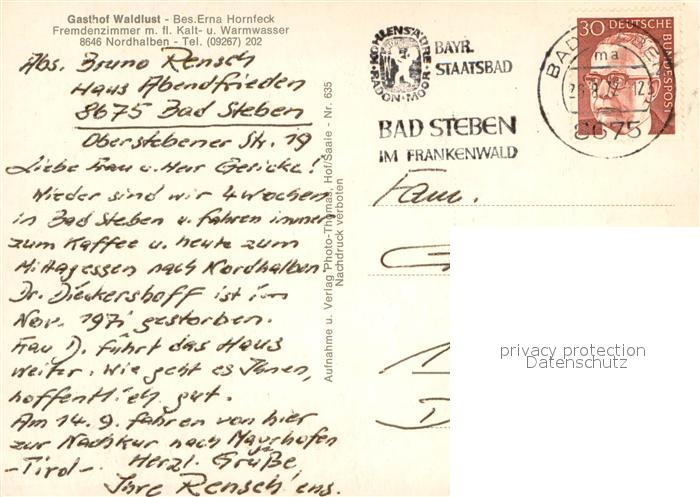 Gasthof Waldlust - Bes.Erna Hornfeck
Fremdenzimmer m. fl. Kalt- u. Warmwasser
8646 Nordhalben - Tel. (09267) 202
Abs. Bruno Rensch
Haus Abendfrieden
8675 Bad Steben
Oberstebener Str. 19
Liebe Frau u. Herr Gericke!
Wieder sind wir 4 Wochen
in Bad Steben u. fahren immer
zum Kaffee u. heute zum
Mittagessen nach Nordhalben
Dr. Dieckershoff ist im
Nov. 1971 gestorben.
Frau D. führt das Haus
weiter. Wie geht es Ihnen,
hoffentlich gut.
Am 14. 9. fahren von hier
zur Nachkur nach Mayrhofen
-Tirol-. Herzl. Grüße
Ihre Rensch'ens.
Aufnahme u. Verlag Photo-Thomas, Hof/Saale - Nr. 635
Nachdruck verboten
KOHLENSÄURE
RADON-MOOR
BAYR.
STAATSBAD
BAD STEBEN
IM FRANKENWALD
30 DEUTSCHE
BUNDESPOST
BAD
ma
8675
Fam.
privacy protection
Datenschutz